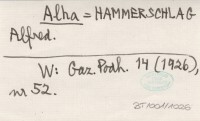 Alha = HAMMERSCHLAG
Alfred.
W: Gaz. Podh. 14 (1926),
nr 52.